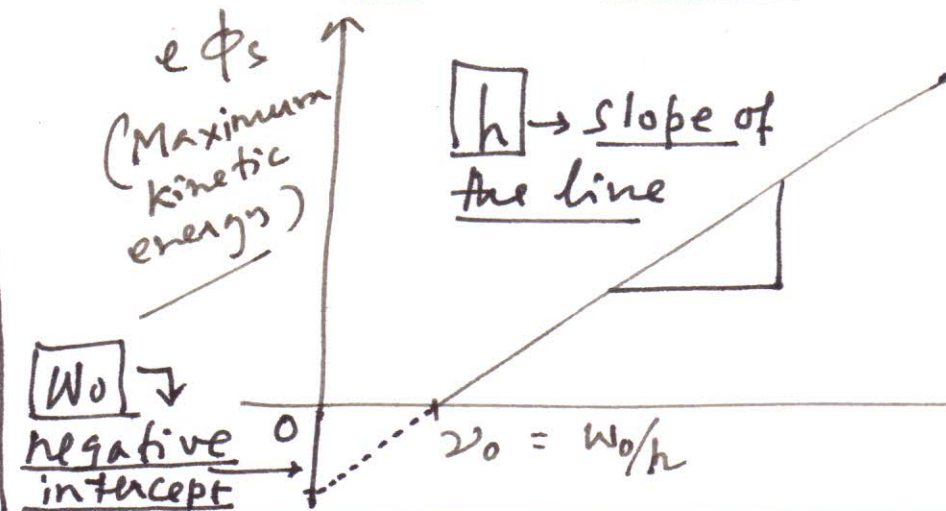 e ϕs
(Maximum
kinetic
energy)
h → slope of
the line
W₀
negative
intercept
0
ν₀ = W₀/h